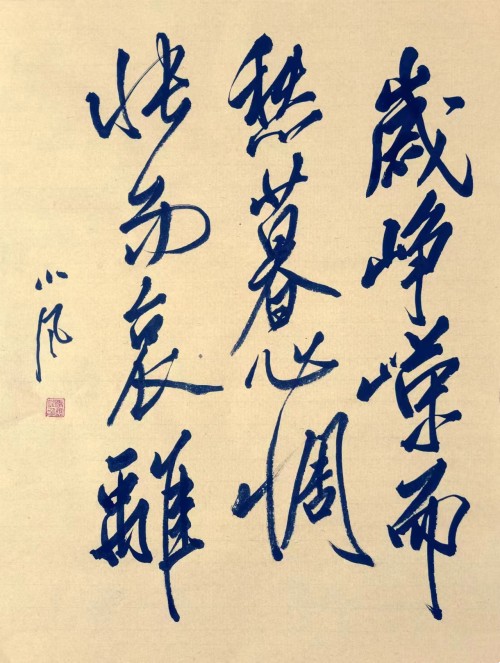 歲崢嶸而
愁暮心惆
悵而哀離
小风